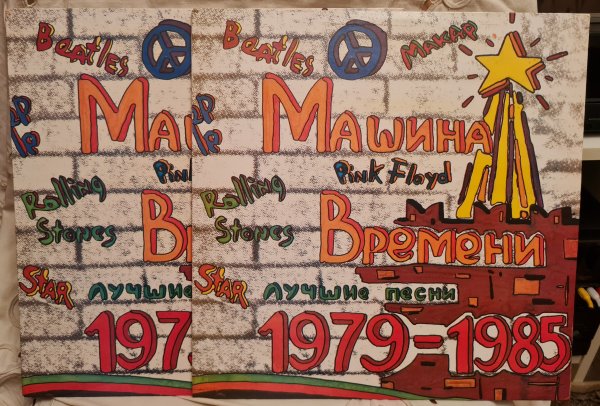 Beatles
Ма
Pin
Rolling
Stones
В
Star
лучшие
197
Beatles
Макар
Машина
Pink Floyd
Rolling
Stones
Времени
Star
лучшие песни
1979-1985